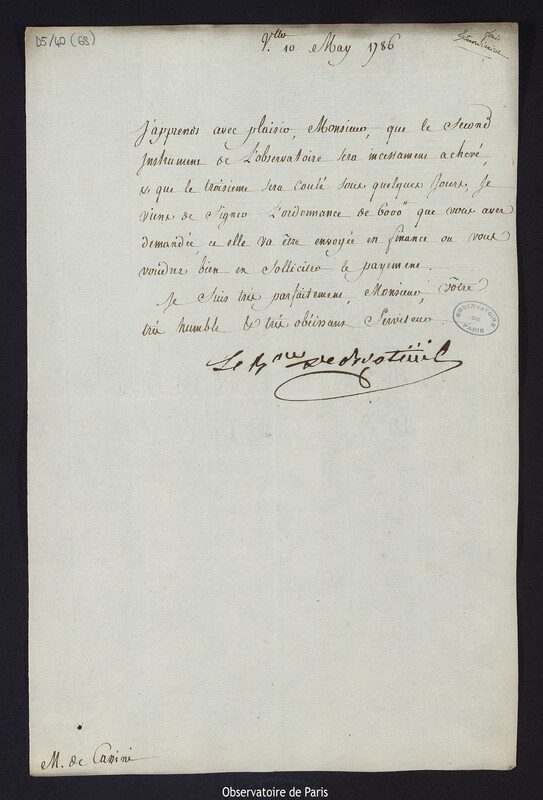 D5/40 (68)
V.lles 10 May 1786
J'apprends avec plaisir, Monsieur, que le Second
Instrument de L'observatoire sera incessament achevé,
& que le troisieme sera coulé sous quelques Jours. Je
viens de Signer L'ordonnance de 6000" que vous avez
demandée, et elle va être envoyée en finance ou vous
voudrez bien en Solliciter le payement.
Je Suis très parfaitement, Monsieur, vôtre
très humble & très obéissant Serviteur.
OBSERVATOIRE DE PARIS
Le Bon De Breteüil
M. de Cassini
Observatoire de Paris